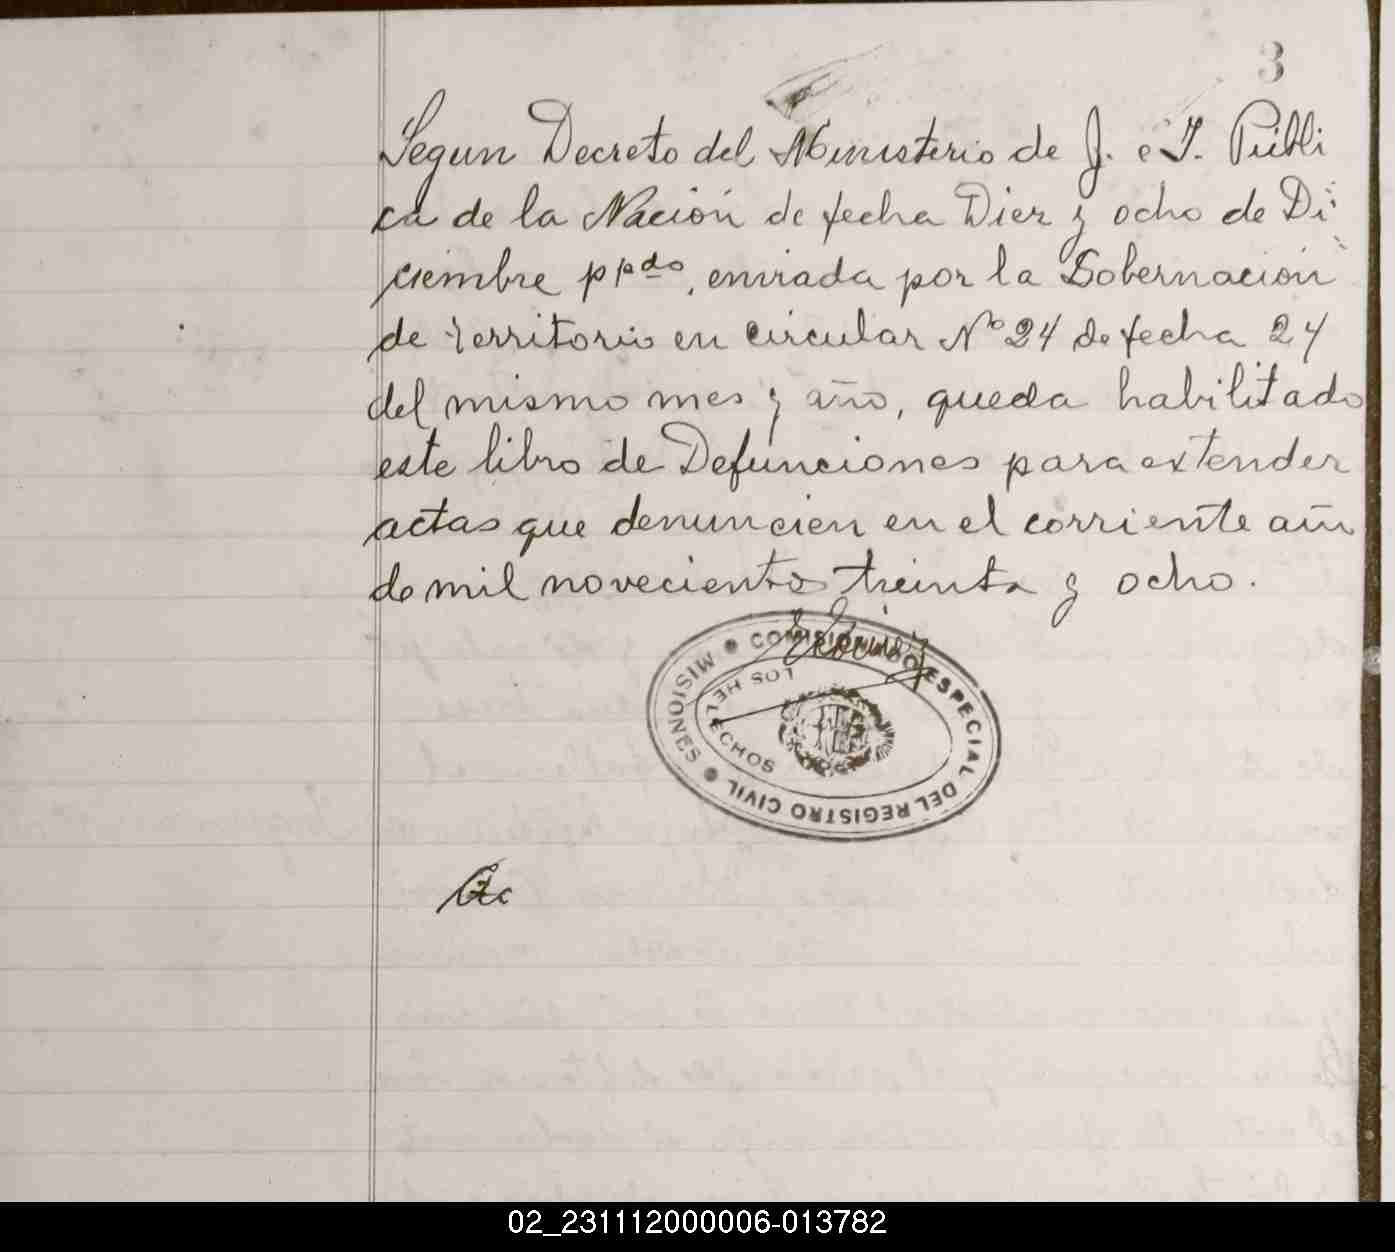 3
Segun Decreto del Ministerio de J. e I. Públi
ca de la Nación de fecha Diez y ocho de Di
ciembre ppdo, enviada por la Gobernación
de territorio en circular Nº 24 de fecha 24
del mismo mes y año, queda habilitado
este libro de Defunciones para extender
actas que denuncien en el corriente año
de mil novecientos treinta y ocho.
COMISIONADO ESPECIAL DEL REGISTRO CIVIL
MISIONES
LOS HELECHOS
02_231112000006-013782